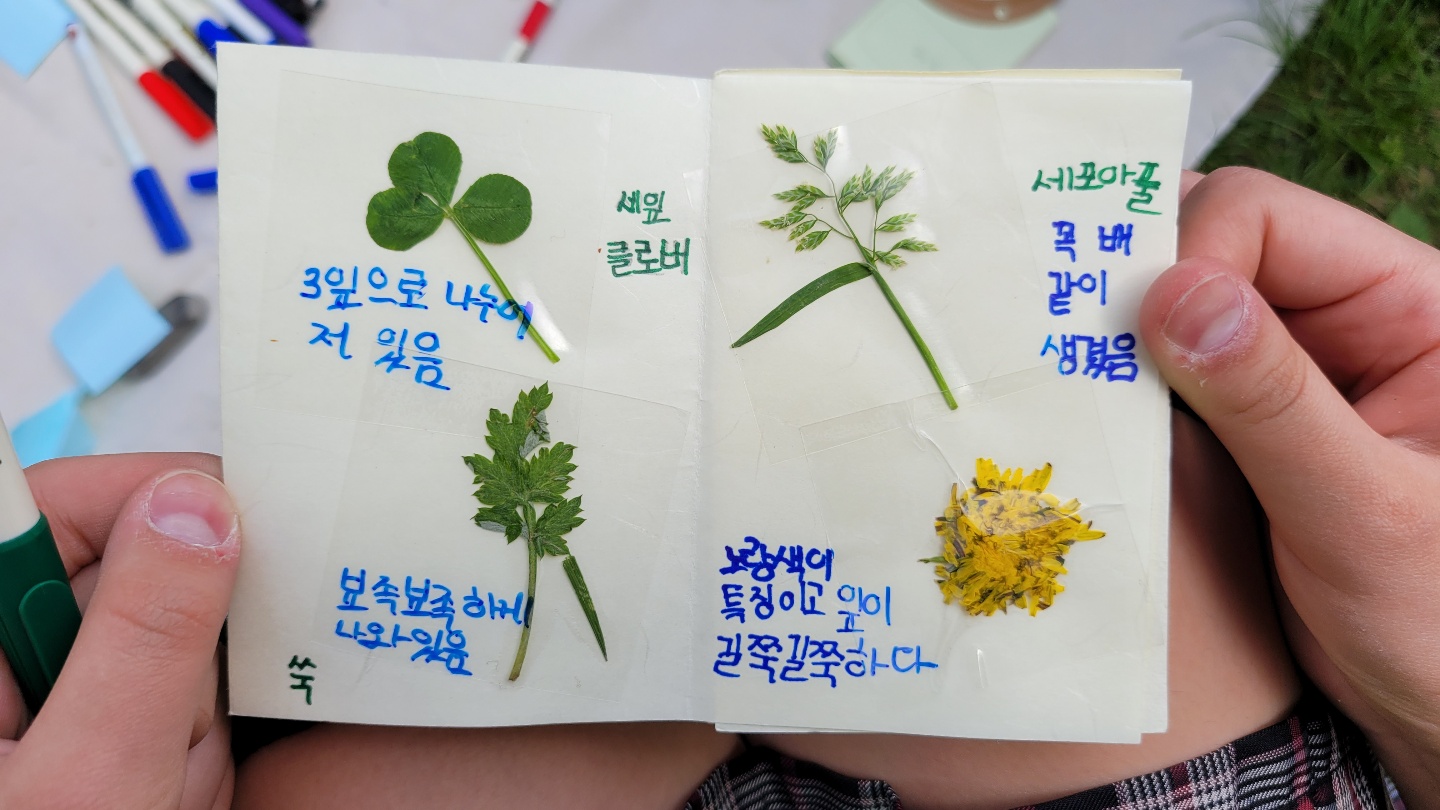 세잎
클로버
3잎으로 나누어
저 있음
뾰족뾰족하게
나와있음
쑥
세포아풀
꼭 벼
같이
생겼음
노랑색이
특징이고 잎이
길쭉길쭉하다